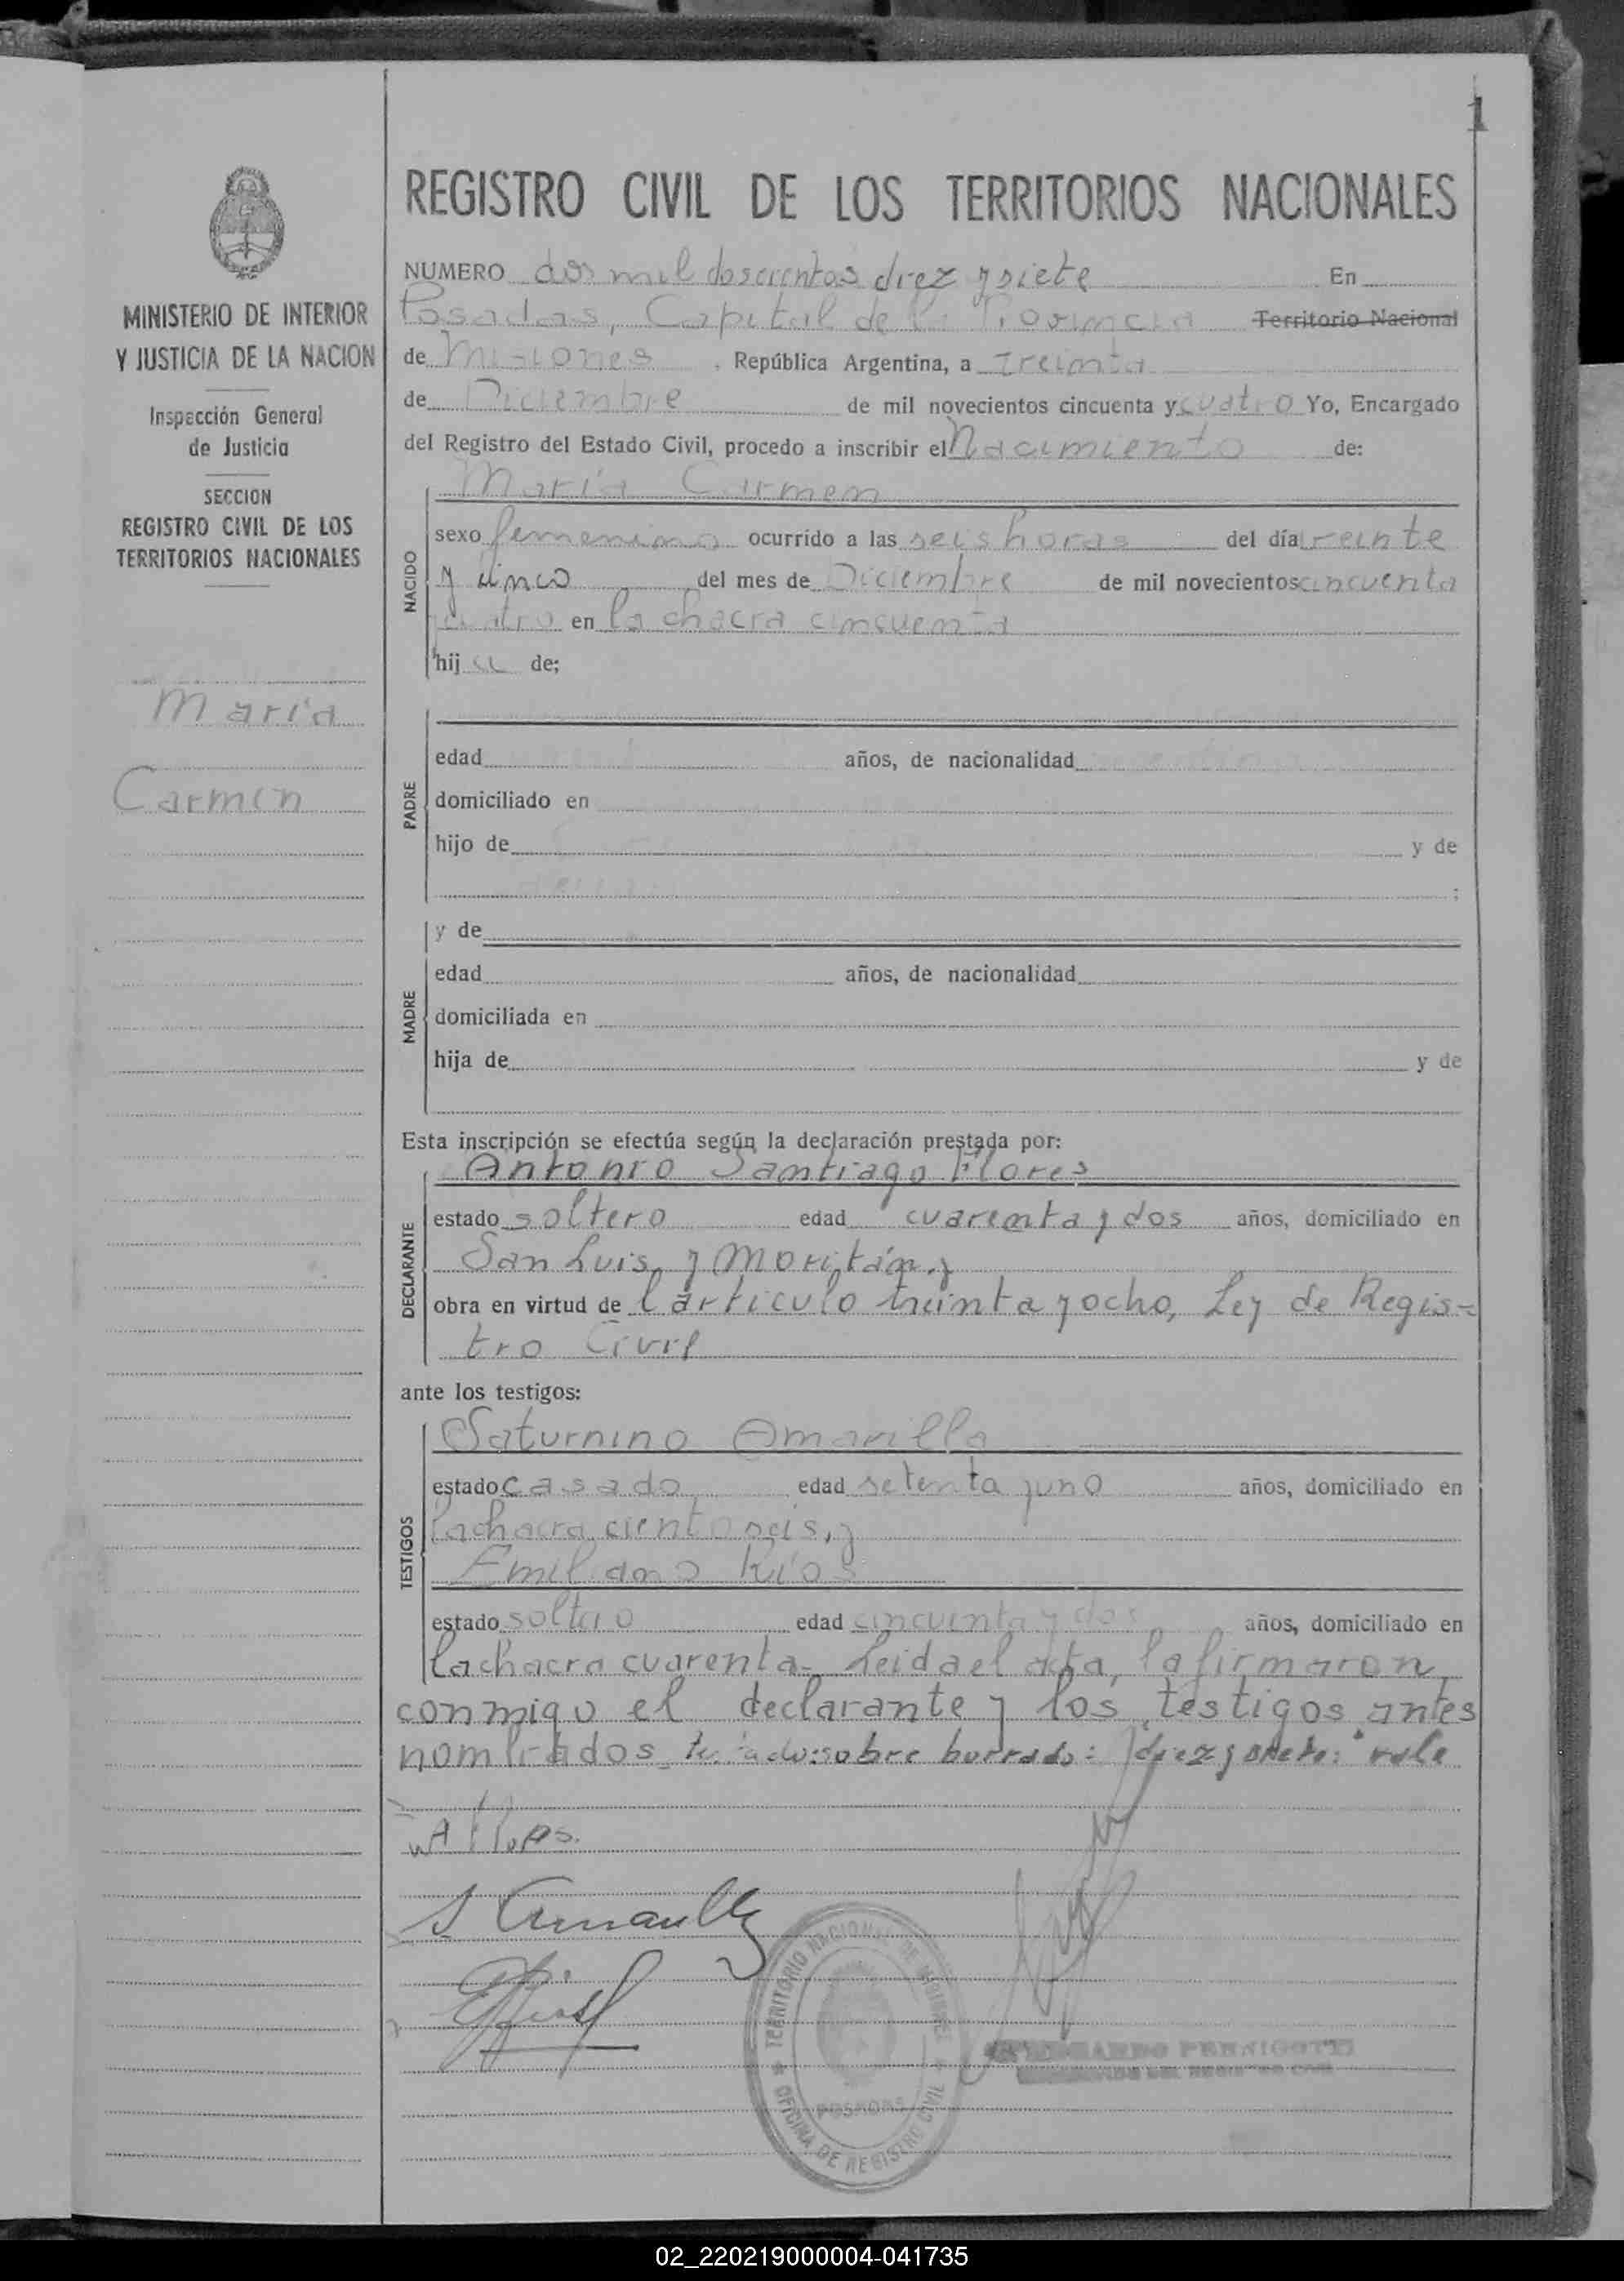 1
REGISTRO CIVIL DE LOS TERRITORIOS NACIONALES
MINISTERIO DE INTERIOR
Y JUSTICIA DE LA NACION
Inspección General
de Justicia
SECCION
REGISTRO CIVIL DE LOS
TERRITORIOS NACIONALES
Maria
Carmen
NUMERO dos mil doscientos diez y siete En
Posadas, Capital de la Provincia Territorio Nacional
de Misiones, República Argentina, a treinta
de Diciembre de mil novecientos cincuenta y cuatro Yo, Encargado
del Registro del Estado Civil, procedo a inscribir el Nacimiento de:
María Carmen
NACIDO
sexo femenino ocurrido a las seis horas del día veinte
y cinco del mes de Diciembre de mil novecientos cincuenta
cuatro en la chacra cincuenta
hija de;
PADRE
edad años, de nacionalidad
domiciliado en
hijo de y de
;
MADRE
y de
edad años, de nacionalidad
domiciliada en
hija de y de
Esta inscripción se efectúa según la declaración prestada por:
DECLARANTE
Antonio Santiago Flores
estado soltero edad cuarenta y dos años, domiciliado en
San Luis y Moritán,
obra en virtud de l artículo treinta y ocho, Ley de Regis=
tro Civil
ante los testigos:
TESTIGOS
Saturnino Amarilla
estado casado edad setenta y uno años, domiciliado en
la chacra ciento seis, y
Emiliano Ríos
estado soltero edad cincuenta y dos años, domiciliado en
la chacra cuarenta- Leida el acta, la firmaron
conmigo el declarante y los testigos antes
nombrados sobre borrado: diez y siete: vale
A Flores.
S Amarilla
ERios
TERRITORIO NACIONAL DE MISIONES
OFICINA DE REGISTRO CIVIL
POSADAS
PERNIGOTTI
02_220219000004-041735